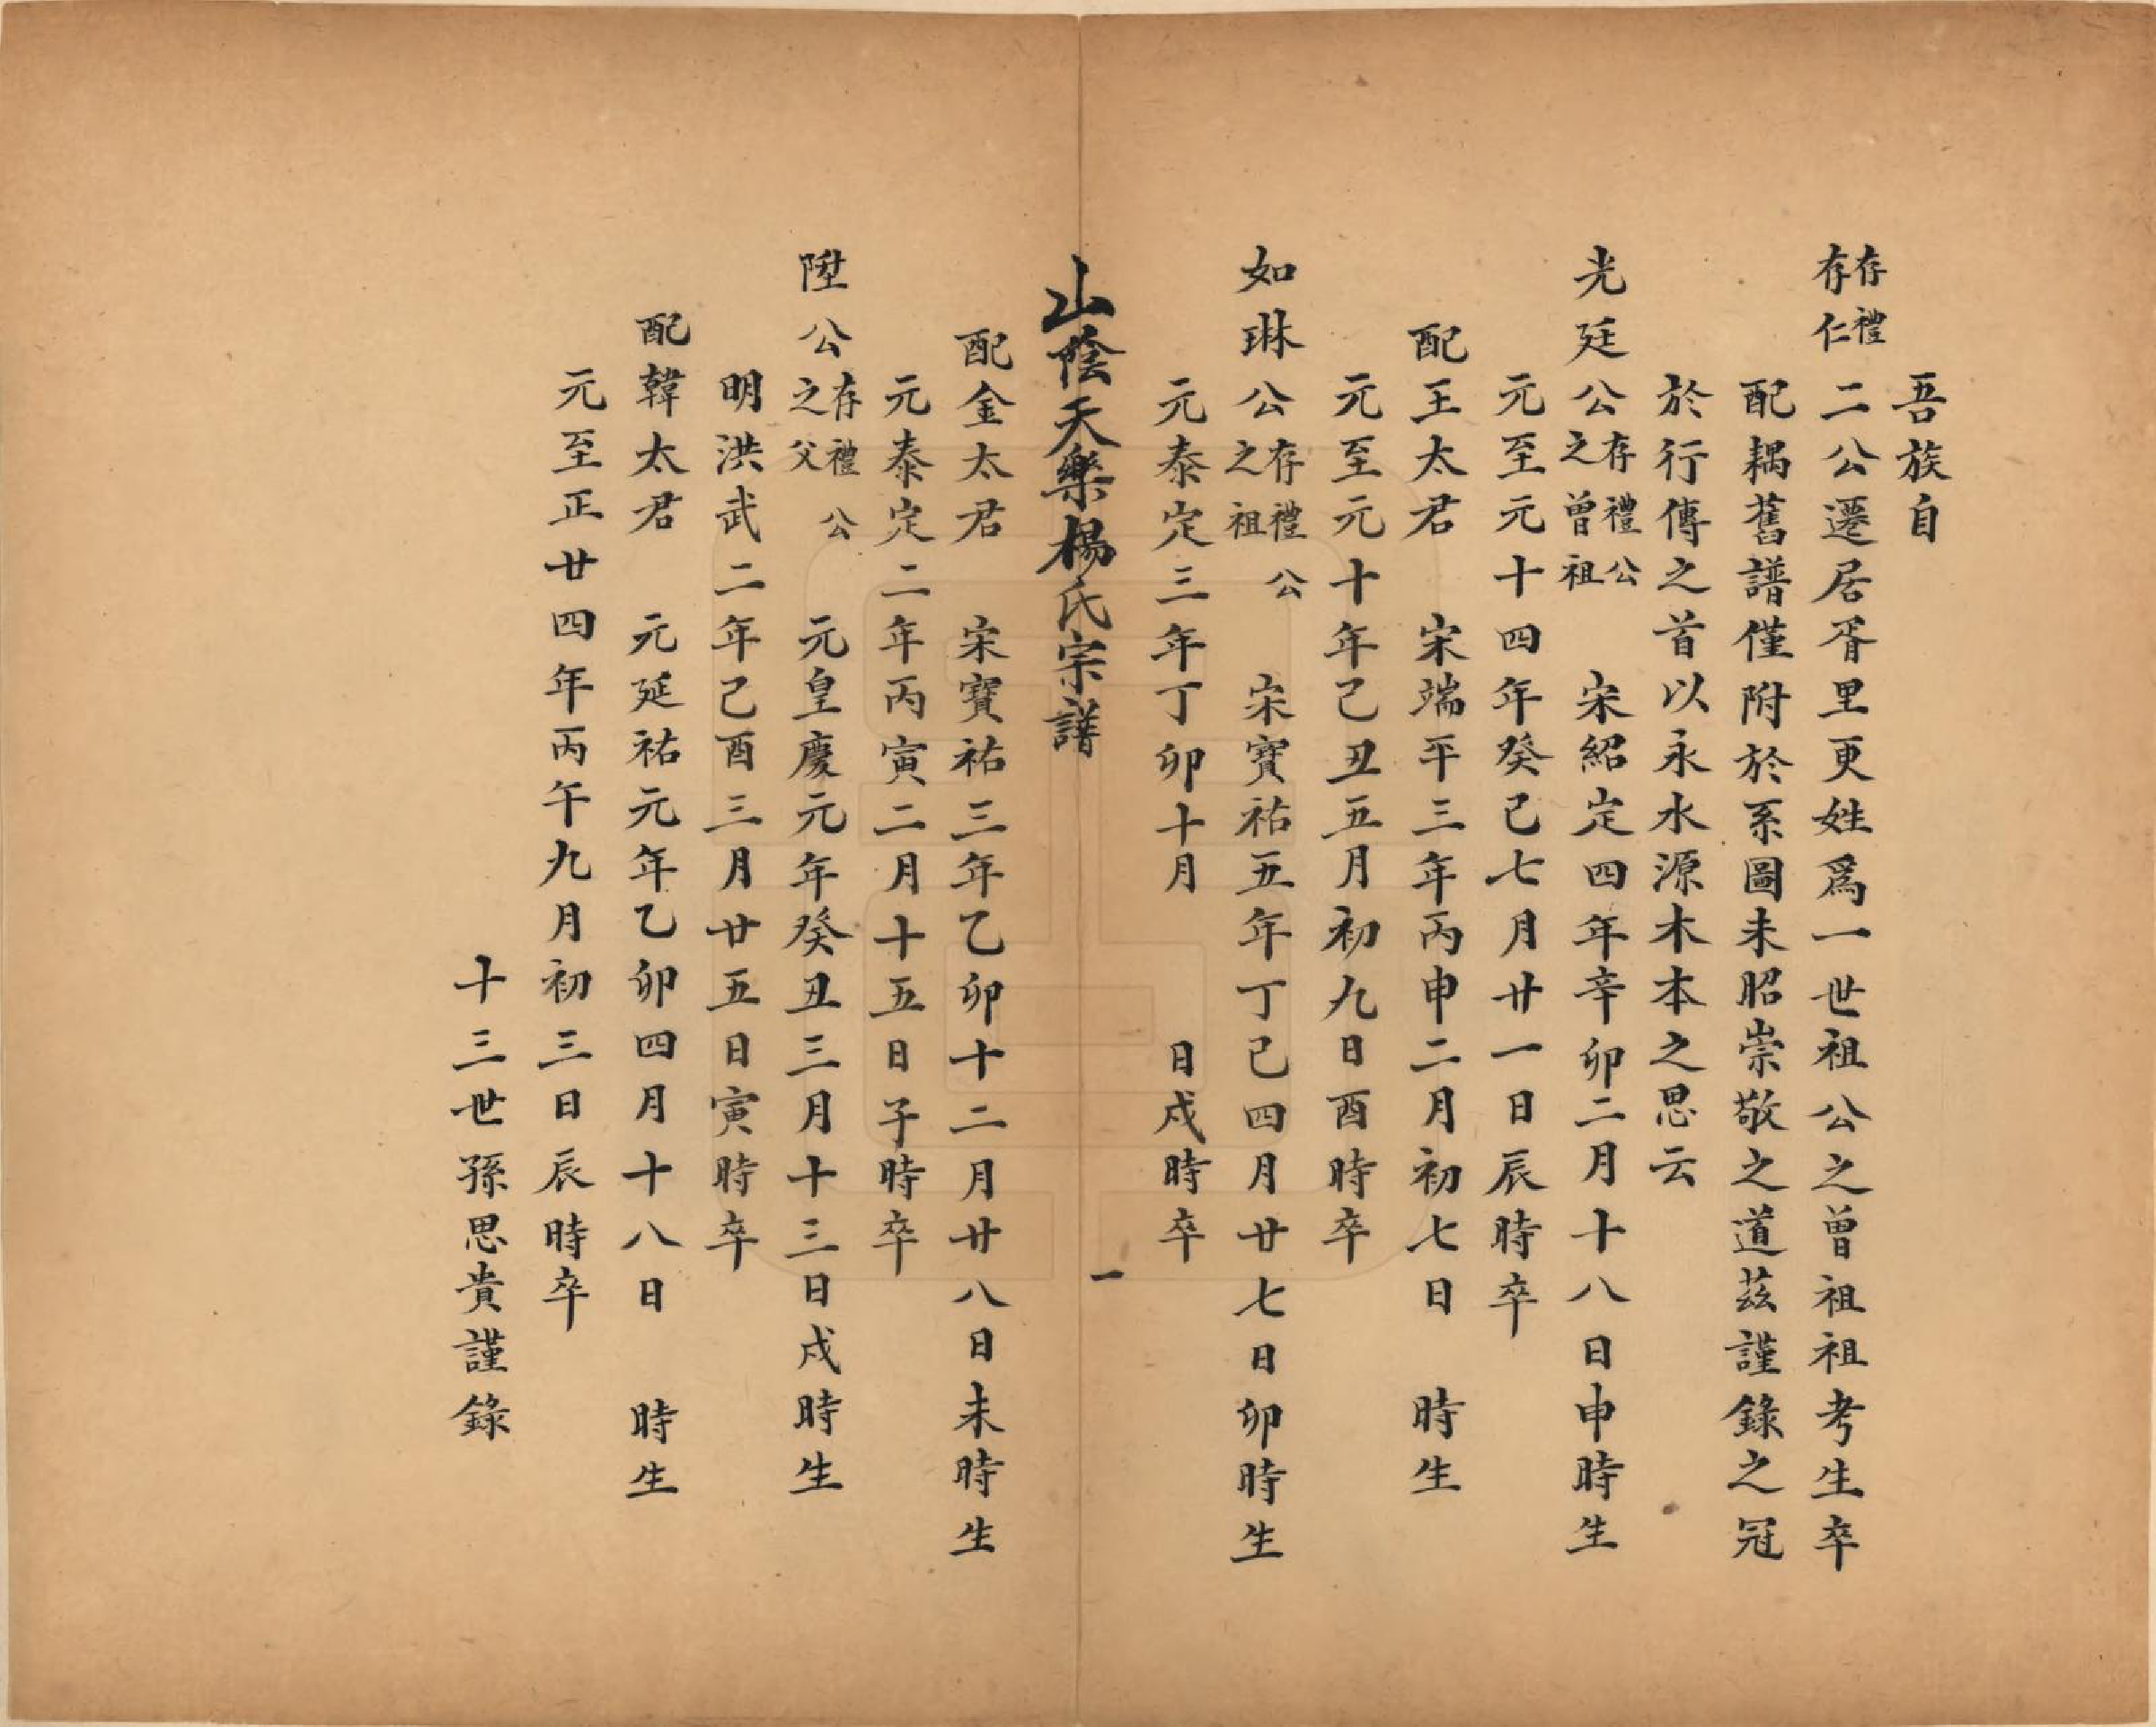 吾族自
存禮存仁二公遷居胥里更姓爲一世祖公之曾祖祖考生卒
配耦舊譜僅附於系圖未昭崇敬之道茲謹錄之冠
於行傳之首以永水源木本之思云
光廷公存禮公之曾祖 宋紹定四年辛卯二月十八日申時生
元至元十四年癸己七月廿一日辰時卒
配王太君 宋端平三年丙申二月初七日 時生
元至元十年己丑五月初九日酉時卒
如琳公存禮公之祖 宋寶祐五年丁己四月廿七日卯時生
元泰定三年丁卯十月 日戍時卒
山陰天樂楊氏宗譜 一
配金太君 宋寶祐三年乙卯十二月廿八日未時生
元泰定二年丙寅二月十五日子時卒
陞公存禮公之父 元皇慶元年癸丑三月十三日戍時生
明洪武二年己酉三月廿五日寅時卒
配韓太君 元延祐元年乙卯四月十八日 時生
元至正廿四年丙午九月初三日辰時卒
十三世孫思貴謹錄